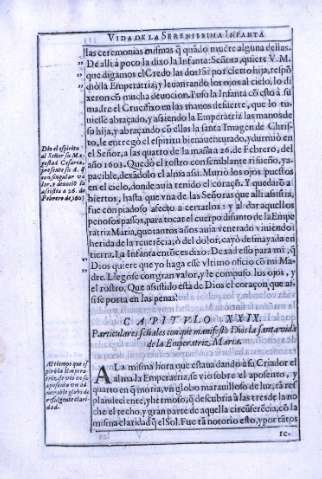 VIDA DE LA SERENISSIMA INFANTA
las ceremonias mismas q̃ quãdo muere alguna dellas.
De alli à poco la dixo la Infanta: Señora, quiere V. M.
que digamos el Credo las dos? Si por cierto hija, respõ
diò la Emperatriz; y leuantando los ojos al cielo, lo di
xeron cõ mucha deuocion. Puso la Infanta cõ esto à su
madre el Crucifixo en las manos de suerte, que lo tu-
uiesse abraçado, y asiendo la Emperatriz las manos de
su hija, y abraçando cõ ellas la santa Imagen de Chris-
to, le entregò el espiritu bienauẽturado, y durmiò en
el Señor, a las quatro de la mañana 26. de Febrero, del
año 1603. Quedò el rostro con semblante risueño, y a-
pacible, dexãdolo el alma assi. Muriò los ojos puestos
en el cielo, donde auia tenido el coraçõ. Y quedarõ a-
biertos, hasta que vna de las Señoras que alli assistia,
fue con piadoso afecto a cerrarlos: y al dar aquellos
penosos passos, para tocar el cuerpo difunto de la Empe
ratriz Maria, quantos años auia venerado viuiendo:
herida de la reuerẽcia, ò del dolor, cayò desmayada en
tierra. La Infanta entõces dixo: De xad esso para mi, q̃
Dios quiere que yo haga esse vltimo oficio cõ mi Ma-
dre. Llegose con gran valor, y le compuso los ojos, y
el rostro. Que assistido està de Dios el coraçon que as-
siste posta en las penas!
Diò el espiritu
al Señor su Ma
gestad Cesarea,
presente su A.
con singular va
lor, y
assistio a 26. de
Febrero de, 603
CAPITVLO XXIX.
Particulares señales con que manifestò Dios la santa vida
de la Emperatriz, Maria.
A La misma hora que estaua dando à su Criador el
alma la Emperatriz, se vio sobre el aposento, y
quarto en q̃ moria, vn globo marauilloso de luz, tã res
plandeciente, y hermoso, q̃ descubria a las tres de la no
che el techo, y gran parte de aquella circũferẽcia, cõ la
misma claridad q̃ el Sol. Fue tã notorio esto, y por tãtos
Al tiempo que es
piraua la Empera
triz, se viò en su
aposento vn ad-
mirable globo de
resplandeciente clari
dad.
te-